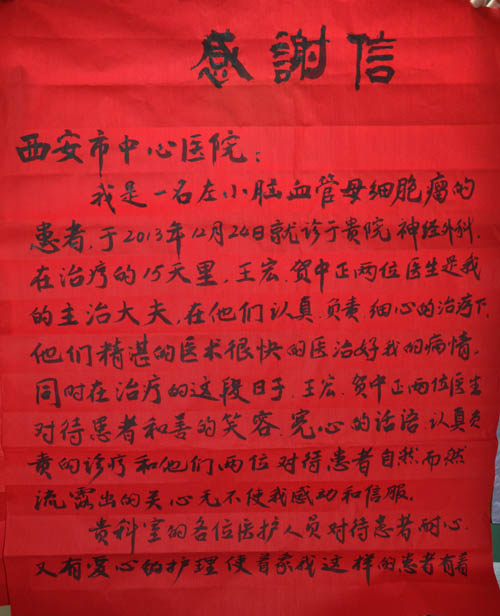 感謝信
西安市中心医院：
我是一名左小脑血管母细胞瘤的
患者，于2013年12月24日就诊于贵院神经外科，
在治疗的15天里，王宏、贺中正两位医生是我
的主治大夫，在他们认真、负责、细心的治疗下，
他们精湛的医术很快的医治好我的病情，
同时在治疗的这段日子，王宏、贺中正两位医生
对待患者和善的笑容、宽心的话语、认真负
责的诊疗和他们两位对待患者自然而然
流露出的关心无不使我感动和信服。
贵科室的各位医护人员对待患者耐心、
又有爱心的护理使着像我这样的患者有着